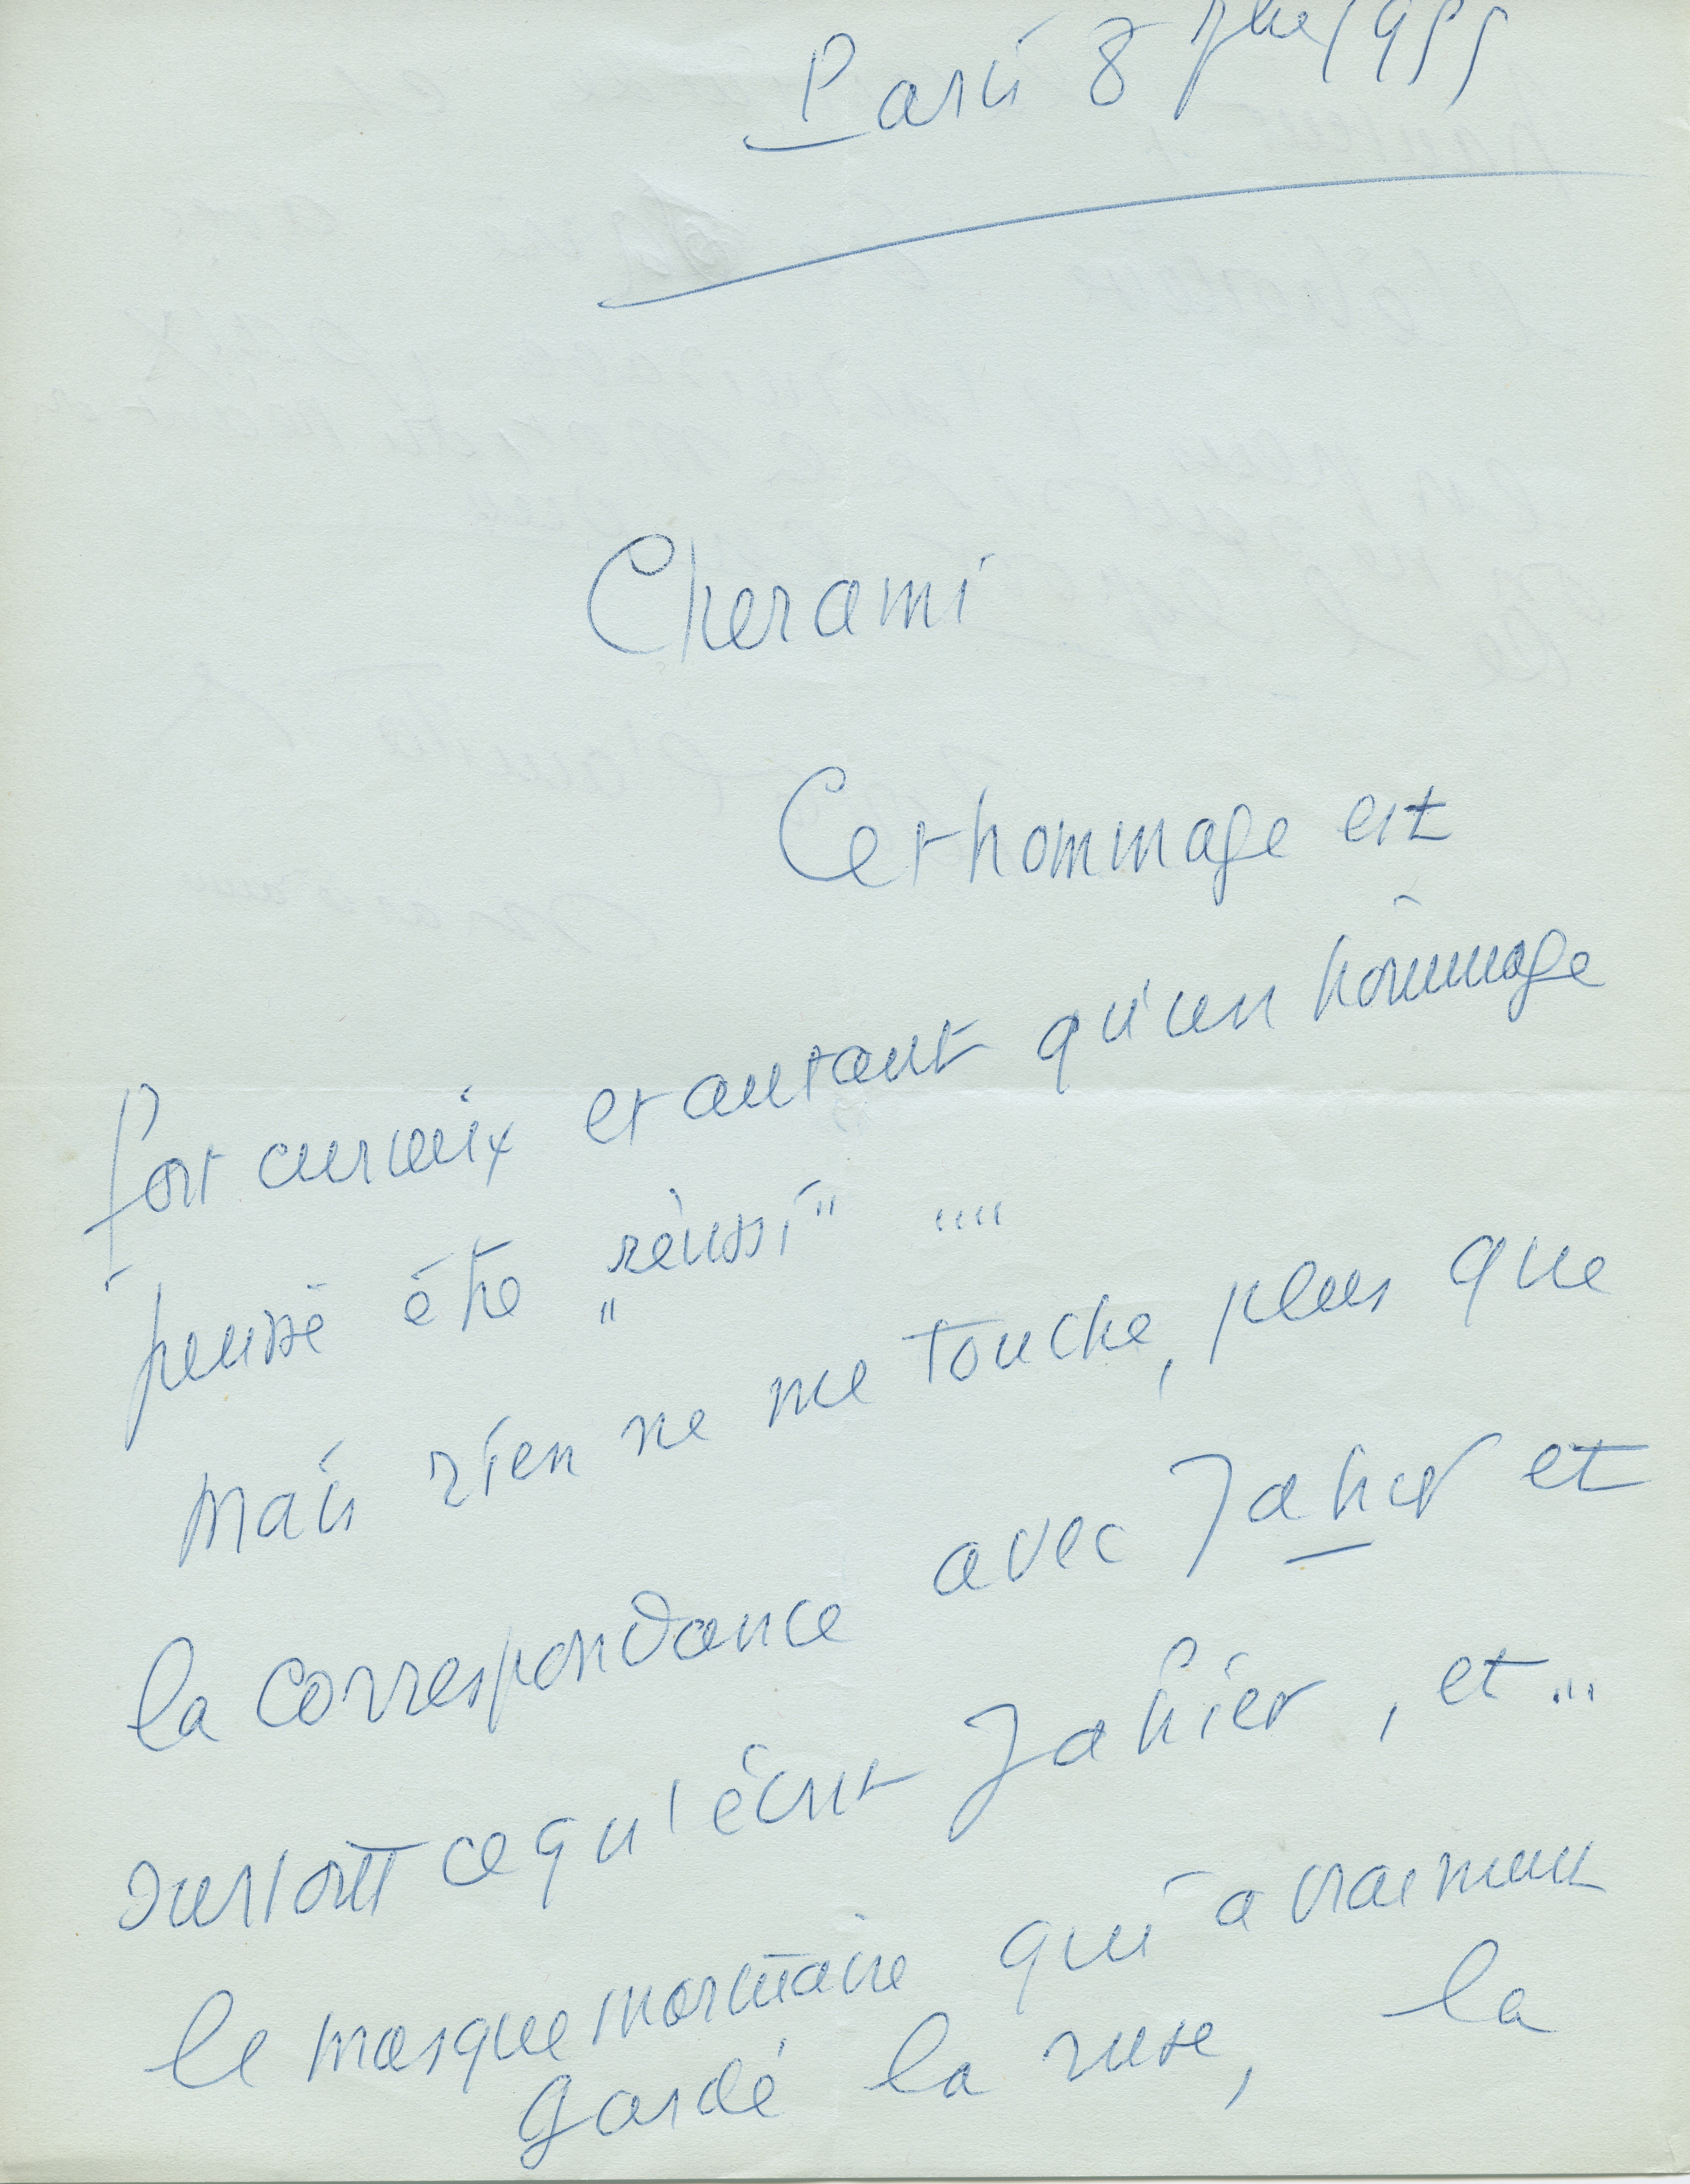 Paris 8 7bre 1955
Cher ami
Cet hommage est
fort curieux et autant qu'un hommage
puisse être "réussi" ....
mais rien ne me touche, plus que
la correspondance avec Jahier et
surtout ce qu'écrit Jahier, et...
le masque mortuaire qui a vraiment
gardé la ruse, la